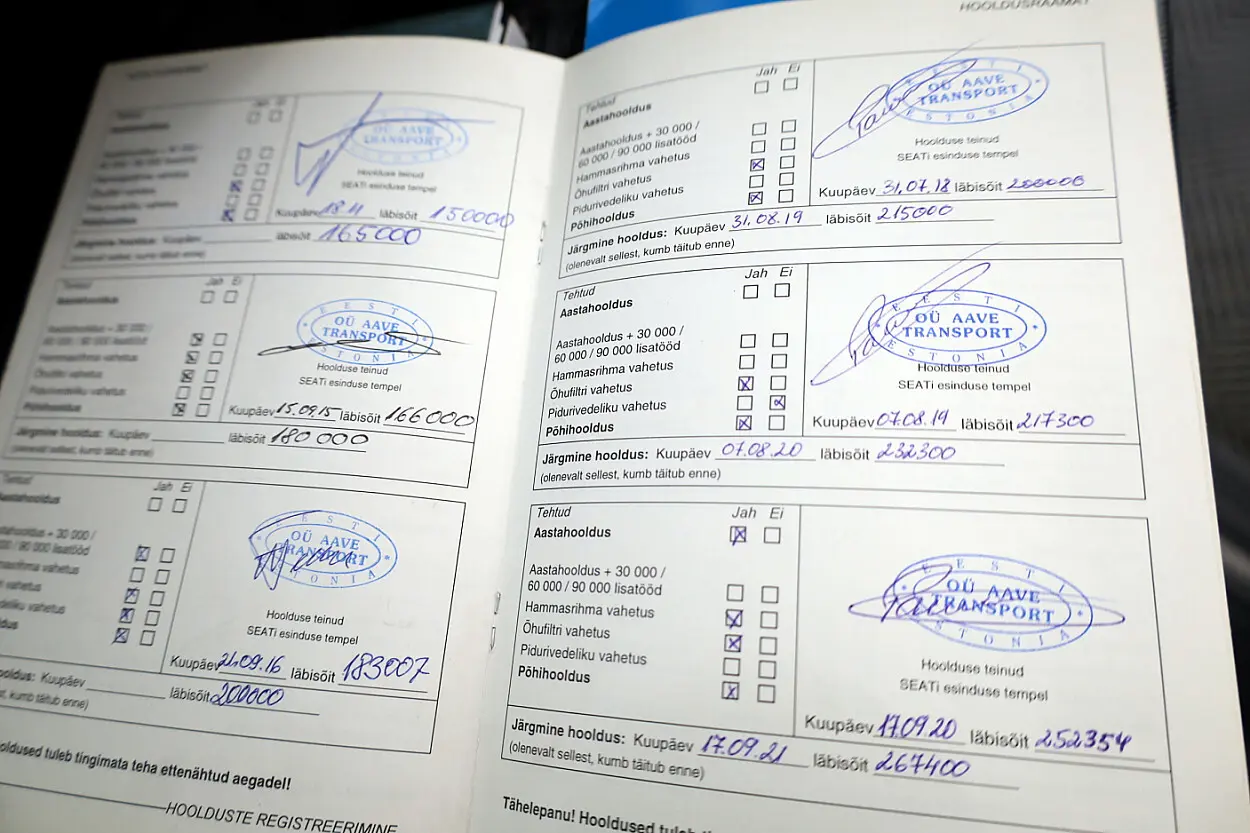 Tehtud
Jah Ei
Aastahooldus
EESTI
OÜ AAVE
TRANSPORT
ESTONIA
Hoolduse teinud
SEATi esinduse tempel
Kuupäev läbisõit 150000
Järgmine hooldus: Kuupäev läbisõit 165000
(olenevalt sellest, kumb täitub enne)
Tehtud
Jah Ei
Aastahooldus
Aastahooldus + 30 000 /
60 000 / 90 000 lisatööd
Hammasrihma vahetus
Õhufiltri vahetus
Pidurivedeliku vahetus
Põhihooldus
EESTI
OÜ AAVE
TRANSPORT
ESTONIA
Hoolduse teinud
SEATi esinduse tempel
Kuupäev 15.09.15 läbisõit 166000
Järgmine hooldus: Kuupäev läbisõit 180 000
(olenevalt sellest, kumb täitub enne)
Jah Ei
Aastahooldus
+ 30 000 /
90 000 lisatööd
vahetus
vahetus
vahetus
EESTI
OÜ AAVE
TRANSPORT
ESTONIA
Hoolduse teinud
SEATi esinduse tempel
Kuupäev 21.09.16 läbisõit 183007
Kuupäev läbisõit 200000
kumb täitub enne)
tuleb tingimata teha ettenähtud aegadel!
HOOLDUSTE REGISTREERIMINE
HOOLDUSRAAMAT
Tehtud
Jah Ei
Aastahooldus
Aastahooldus + 30 000 /
60 000 / 90 000 lisatööd
Hammasrihma vahetus
Õhufiltri vahetus
Pidurivedeliku vahetus
Põhihooldus
EESTI
OÜ AAVE
TRANSPORT
ESTONIA
Hoolduse teinud
SEATi esinduse tempel
Kuupäev 31.07.18 läbisõit 200000
Järgmine hooldus: Kuupäev 31.08.19 läbisõit 215000
(olenevalt sellest, kumb täitub enne)
Tehtud
Jah Ei
Aastahooldus
Aastahooldus + 30 000 /
60 000 / 90 000 lisatööd
Hammasrihma vahetus
Õhufiltri vahetus
Pidurivedeliku vahetus
Põhihooldus
EESTI
OÜ AAVE
TRANSPORT
ESTONIA
Hoolduse teinud
SEATi esinduse tempel
Kuupäev 07.08.19 läbisõit 217300
Järgmine hooldus: Kuupäev 07.08.20 läbisõit 232300
(olenevalt sellest, kumb täitub enne)
Tehtud
Jah Ei
Aastahooldus
Aastahooldus + 30 000 /
60 000 / 90 000 lisatööd
Hammasrihma vahetus
Õhufiltri vahetus
Pidurivedeliku vahetus
Põhihooldus
EESTI
OÜ AAVE
TRANSPORT
ESTONIA
Hoolduse teinud
SEATi esinduse tempel
Kuupäev 17.09.20 läbisõit 252354
Järgmine hooldus: Kuupäev 17.09.21 läbisõit 267400
(olenevalt sellest, kumb täitub enne)
Tähelepanu! Hooldused tuleb